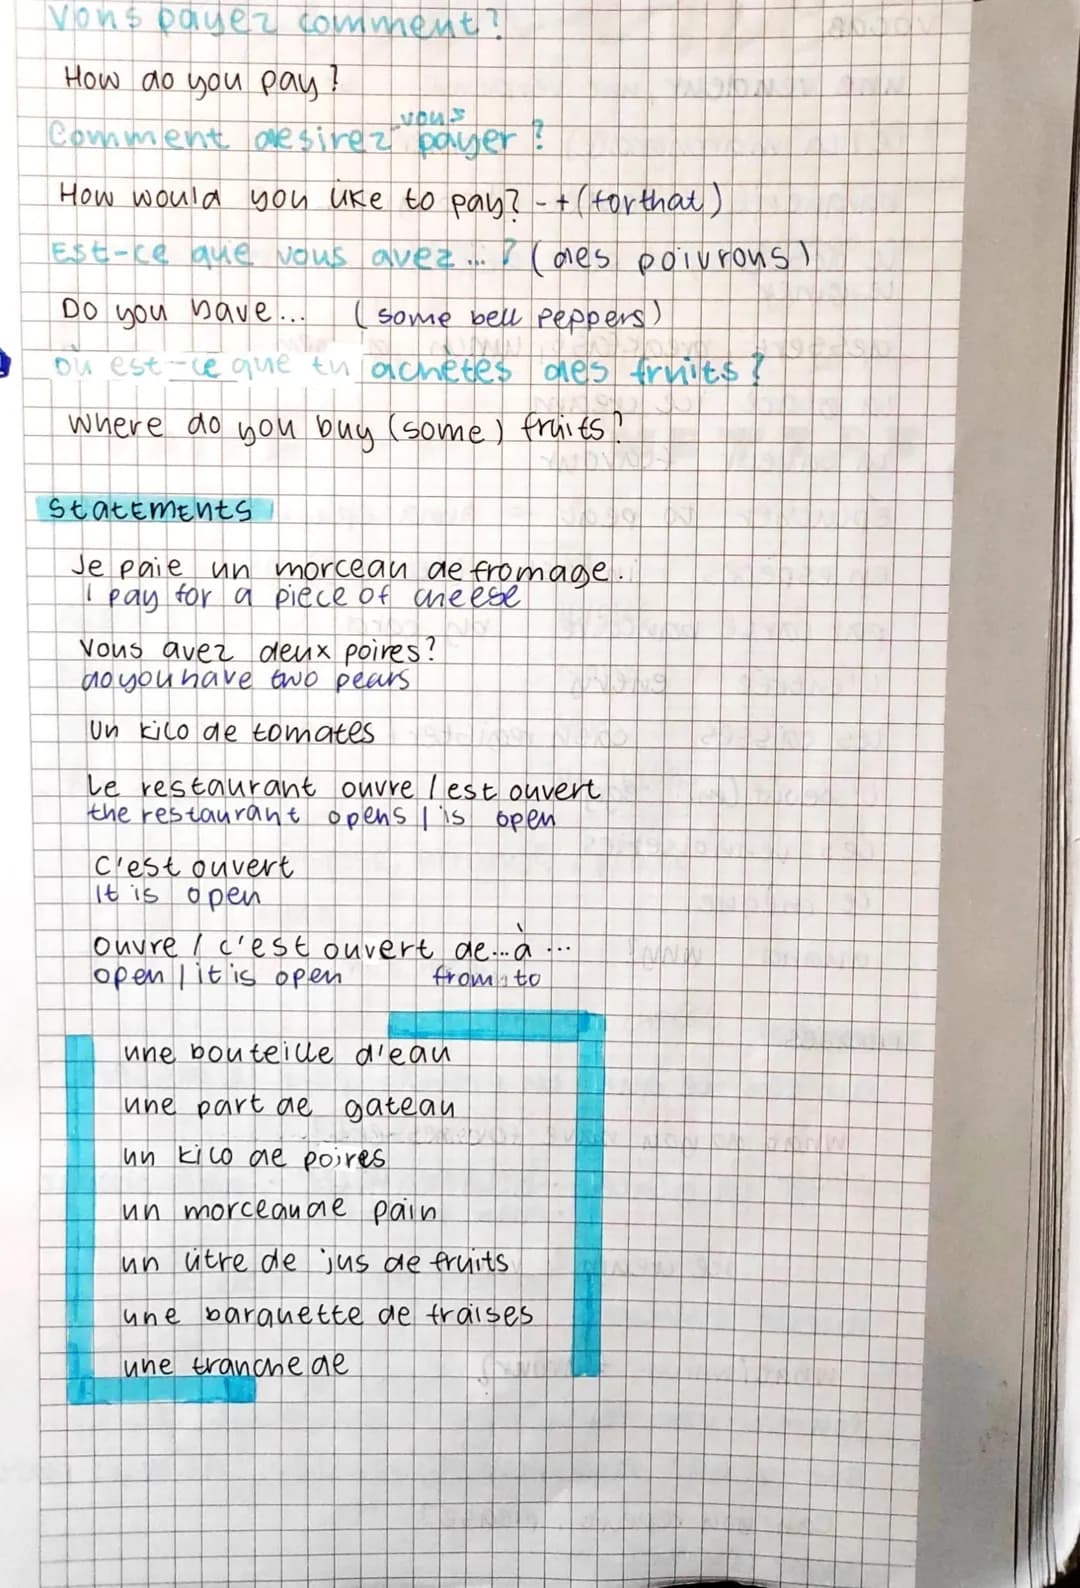 Vous payez comment?
How do you pay?
Comment desirez-vous payer?
How would you like to pay? -+ (for that)
Est-ce que vous avez...? (des poivrons)
Do you have... (some bell peppers)
où est-ce que tu achètes des fruits?
Where do you buy (some) fruits?
Statements
Je paie un morceau de fromage.
I pay for a piece of cheese
Vous avez deux poires?
do you have two pears
Un kilo de tomates
Le restaurant ouvre / est ouvert
the restaurant opens | is open
C'est ouvert
It is open
ouvre / c'est ouvert de...à...
open | it is open from to
une bouteille d'eau
une part de gateau
un kilo de poires
un morceau de pain
un litre de jus de fruits
une barquette de fraises
une tranche de